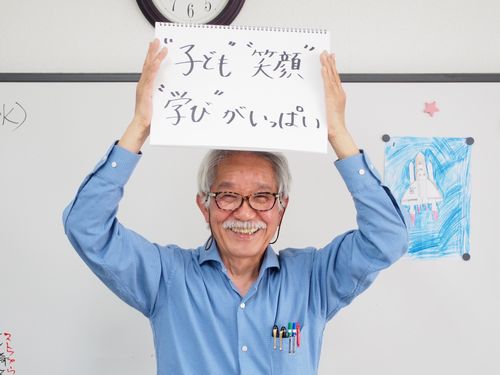 7 6 5
"子ども" "笑顔"
"学び"がいっぱい
k)